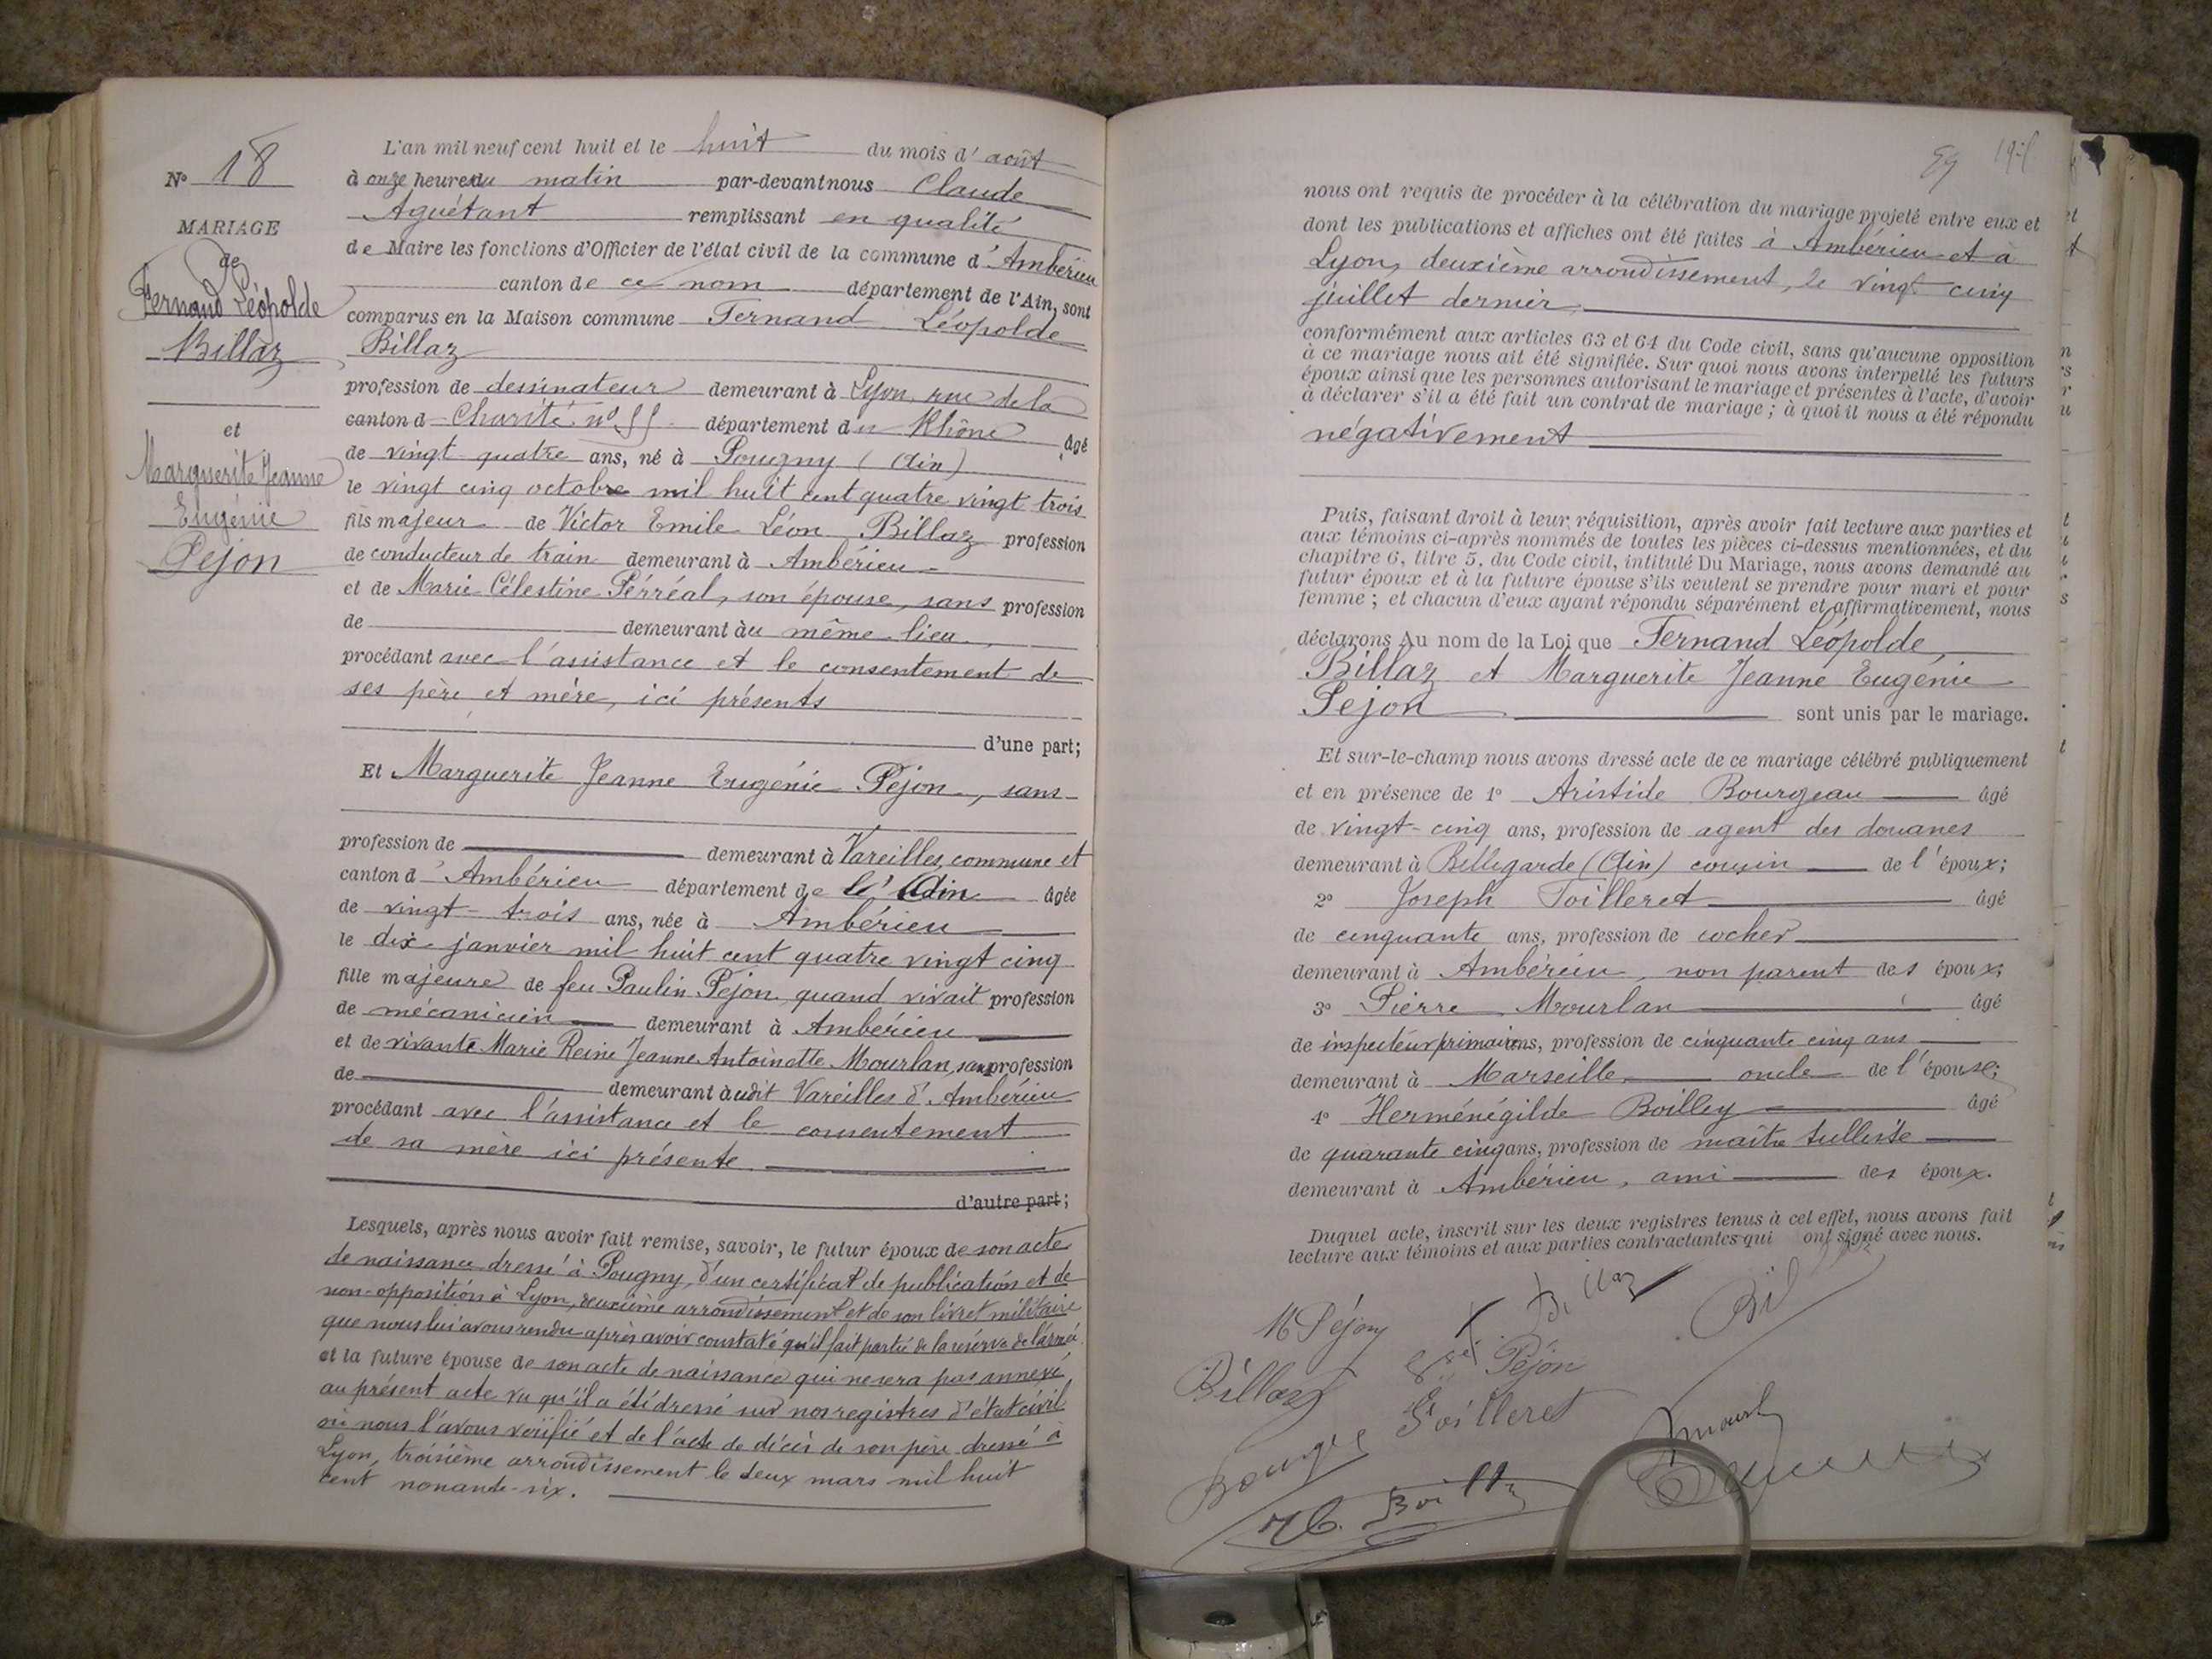 N° 18
MARIAGE
de
Fernand Léopolde
Billaz
et
Marguerite Jeanne
Eugénie
Pejon
L'an mil neuf cent huit et le huit du mois d'août
à onze heures du matin par-devant nous Claude
Aguétant remplissant en qualité
de Maire les fonctions d'Officier de l'état civil de la commune d'Ambérieu
canton de ce nom département de l'Ain, sont
comparus en la Maison commune Fernand Léopolde
Billaz
profession de dessinateur demeurant à Lyon, rue de la
canton d Charité, n° 55 département du Rhône âgé
de vingt quatre ans, né à Pougny (Ain)
le vingt cinq octobre mil huit cent quatre vingt trois
fils majeur de Victor Emile Léon Billaz profession
de conducteur de train demeurant à Ambérieu
et de Marie Célestine Pérréal, son épouse, sans profession
de demeurant au même lieu,
procédant avec l'assistance et le consentement de
ses père et mère, ici présents
d'une part;
Et Marguerite Jeanne Eugénie Pejon, sans
profession de demeurant à Vareilles, commune et
canton d'Ambérieu département de l'Ain âgée
de vingt-trois ans, née à Ambérieu
le dix janvier mil huit cent quatre vingt cinq
fille majeure de feu Paulin Pejon, quand vivait profession
de mécanicien demeurant à Ambérieu
et de vivante Marie Reine Jeanne Antoinette Mourlan, sans profession
de demeurant audit Vareilles d'Ambérieu
procédant avec l'assistance et le consentement
de sa mère ici présente
d'autre part;
Lesquels, après nous avoir fait remise, savoir, le futur époux de son acte
de naissance dressé à Pougny, d'un certificat de publication et de
non-opposition à Lyon, deuxième arrondissement et de son livret militaire
que nous lui avons rendu après avoir constaté qu'il fait partie de la réserve de l'armée
et la future épouse de son acte de naissance qui ne sera pas annexé
au présent acte vu qu'il a été dressé sur nos registres d'état civil
où nous l'avons vérifié et de l'acte de décès de son père dressé à
Lyon, troisième arrondissement le deux mars mil huit
cent nonante-six.
59
nous ont requis de procéder à la célébration du mariage projeté entre eux et
dont les publications et affiches ont été faites à Ambérieu et à
Lyon, deuxième arrondissement, le vingt cinq
juillet dernier,
conformément aux articles 63 et 64 du Code civil, sans qu'aucune opposition
à ce mariage nous ait été signifiée. Sur quoi nous avons interpellé les futurs
époux ainsi que les personnes autorisant le mariage et présentes à l'acte, d'avoir
à déclarer s'il a été fait un contrat de mariage; à quoi il nous a été répondu
négativement
Puis, faisant droit à leur réquisition, après avoir fait lecture aux parties et
aux témoins ci-après nommés de toutes les pièces ci-dessus mentionnées, et du
chapitre 6, titre 5, du Code civil, intitulé Du Mariage, nous avons demandé au
futur époux et à la future épouse s'ils veulent se prendre pour mari et pour
femme; et chacun d'eux ayant répondu séparément et affirmativement, nous
déclarons Au nom de la Loi que Fernand Léopolde
Billaz et Marguerite Jeanne Eugénie
Pejon sont unis par le mariage.
Et sur-le-champ nous avons dressé acte de ce mariage célébré publiquement
et en présence de 1° Aristide Bourgeau âgé
de vingt-cinq ans, profession de agent des douanes
demeurant à Bellegarde (Ain) cousin de l'époux;
2° Joseph Toilleret âgé
de cinquante ans, profession de cocher
demeurant à Ambérieu, non parent des époux;
3° Pierre Mourlan âgé
de inspecteur primaire ans, profession de cinquante cinq ans
demeurant à Marseille oncle de l'épouse;
4° Herménégilde Boilley âgé
de quarante cinq ans, profession de maître tulliste
demeurant à Ambérieu, ami des époux.
Duquel acte, inscrit sur les deux registres tenus à cet effet, nous avons fait
lecture aux témoins et aux parties contractantes qui ont signé avec nous.
M Péjon
Billaz
Péjon
Toilleret